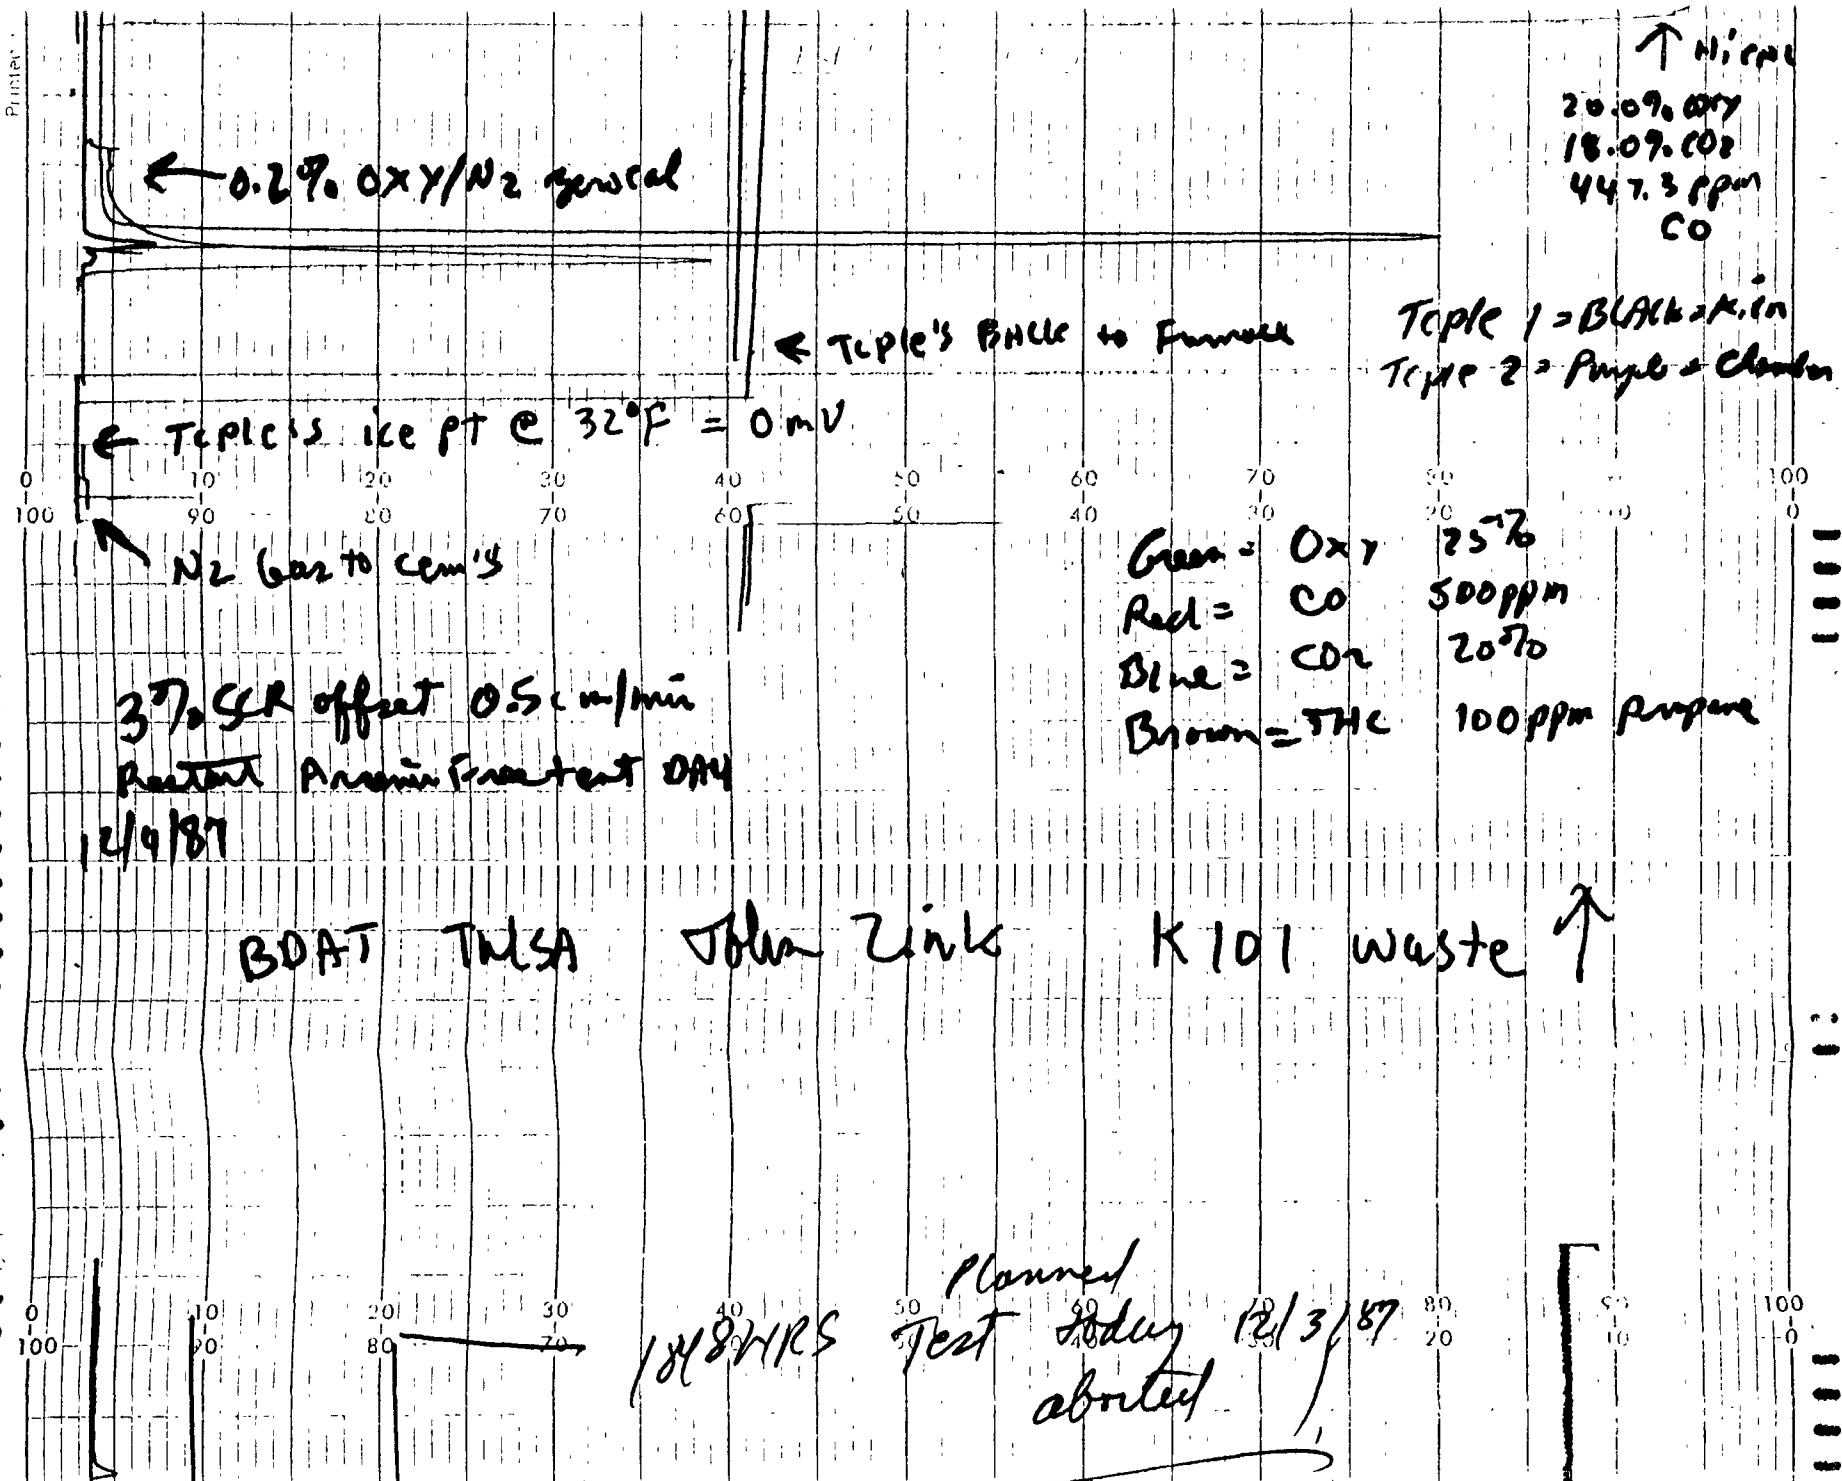 Printed
↑ Hi cal
20.0% oxy
18.0% CO2
447.3 ppm
CO
← 0.2% OXY/N2 zero cal
← Tcple's BACK to Furnace
Tcple 1 = BLACK = Kiln
Tcple 2 = Purple = Chamber
← Tcple's ice pt @ 32°F = 0 mV
0 10 20 30 40 50 60 70 80 100
100 90 80 70 60 50 40 30 20 0
N2 Gas to cem's
Green = Oxy 25%
Red = CO 500 ppm
Blue = CO2 20%
Brown = THC 100 ppm propane
3% SCR offset 0.5 cm/min
Restart DAY
12/9/87
BDAT TULSA John Zink K101 waste ↑
Planned
0 10 20 30 40 50 60 70 80 90 100
100 90 80 70 20 10 0
1848 HRS Test today 12/3/87
aborted